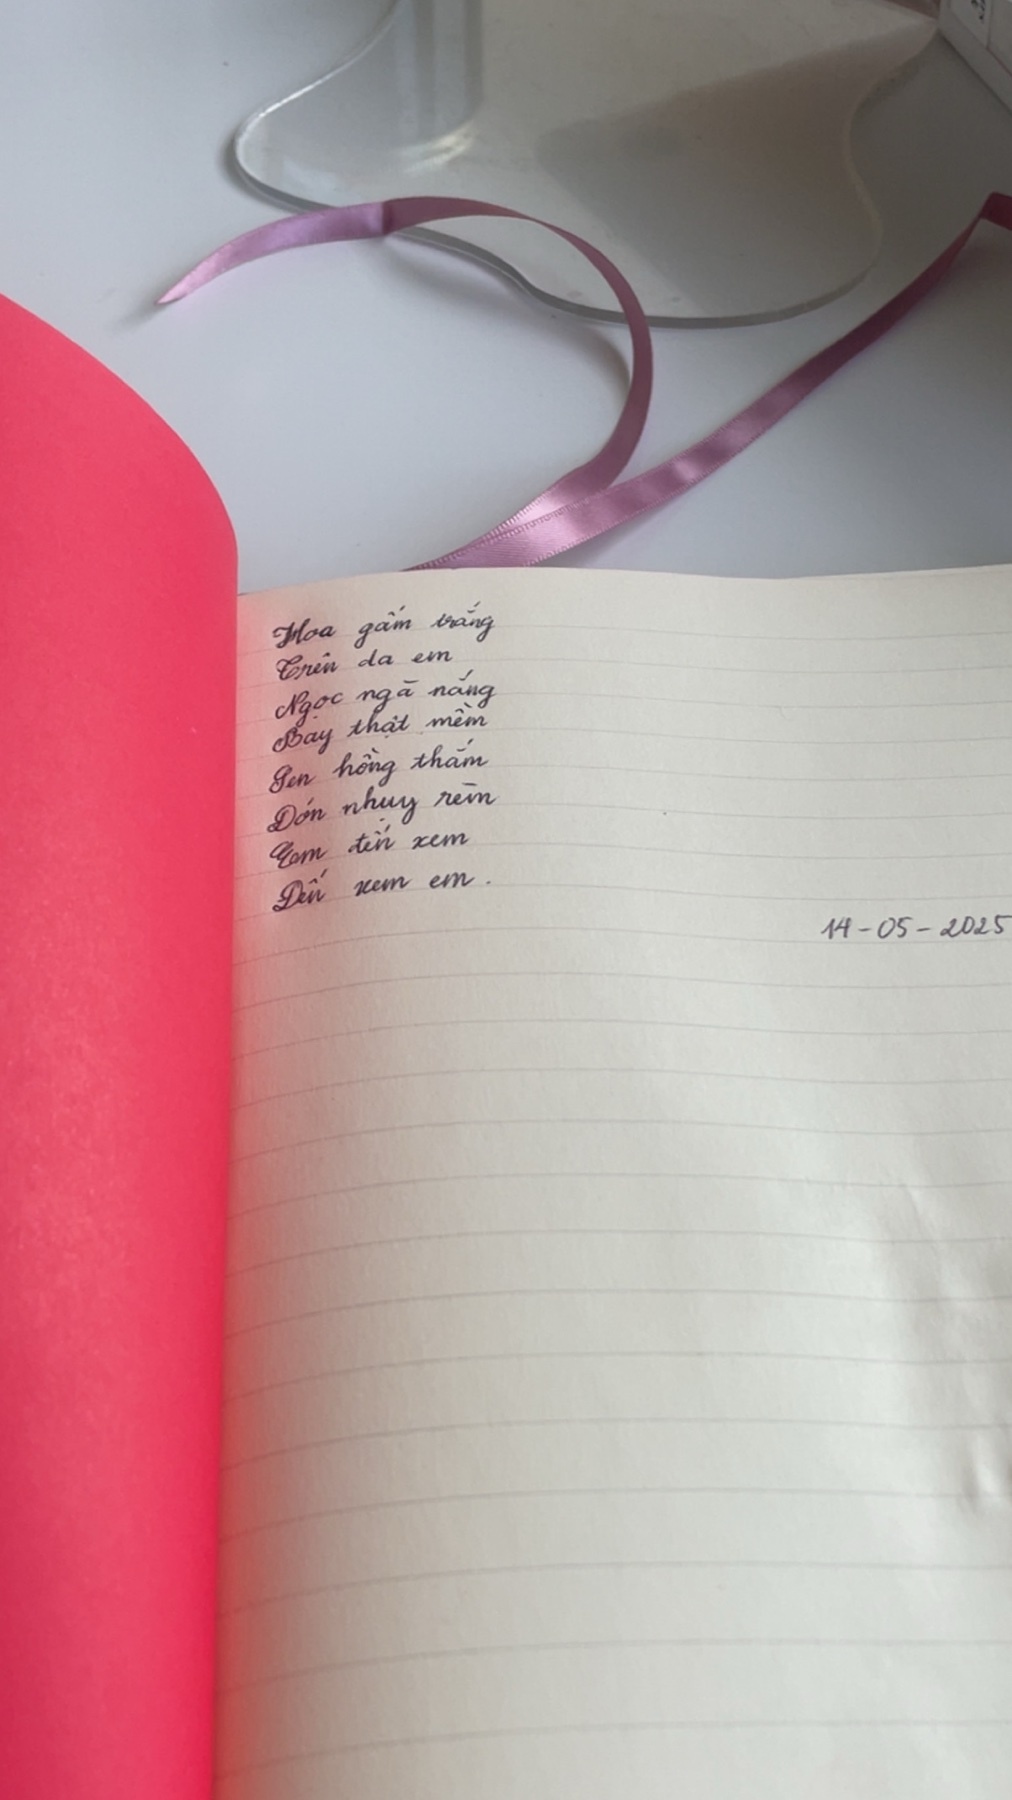 Hoa gấm trắng
Trên da em
Ngọc ngã nắng
Bay thật mềm
Sen hồng thắm
Đón nhụy rèm
Em đến xem
Đến xem em.
14-05-2025